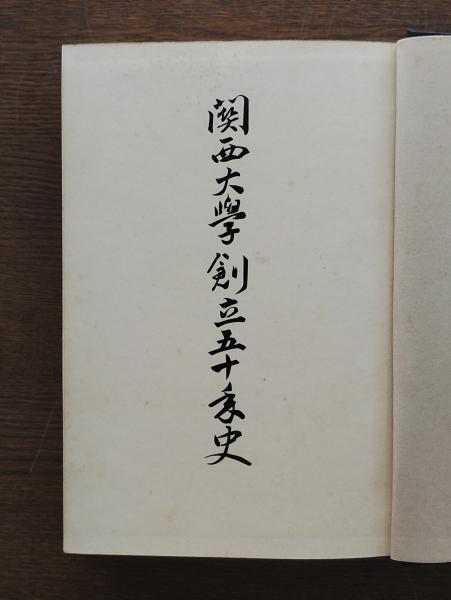 関西大學創立五十年史